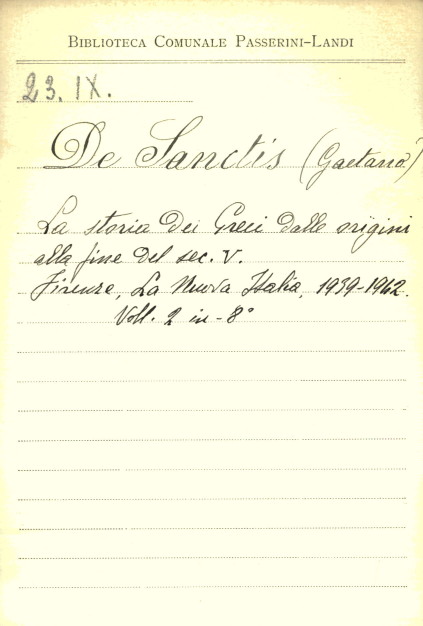 BIBLIOTECA COMUNALE PASSERINI-LANDI
23. IX.
De Sanctis (Gaetano)
La storia dei Greci dalle origini
alla fine del sec. V.
Firenze, La Nuova Italia, 1939-1962.
Voll. 2 in-8°